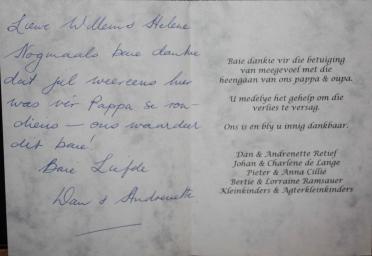 Liewe Willem & Helene
Nogmaals baie dankie
dat jul weereens hier
was vir Pappa se rou-
diens — ons waardeer
dit baie!
Baie Liefde
Dan & Andrenette
Baie dankie vir die betuiging
van meegevoel met die
heengaan van ons pappa & oupa.
U medelye het gehelp om die
verlies te versag.
Ons is en bly u innig dankbaar.
Dan & Andrenette Retief
Johan & Charlene de Lange
Pieter & Anna Cillie
Bertie & Lorraine Ramsauer
Kleinkinders & Agterkleinkinders